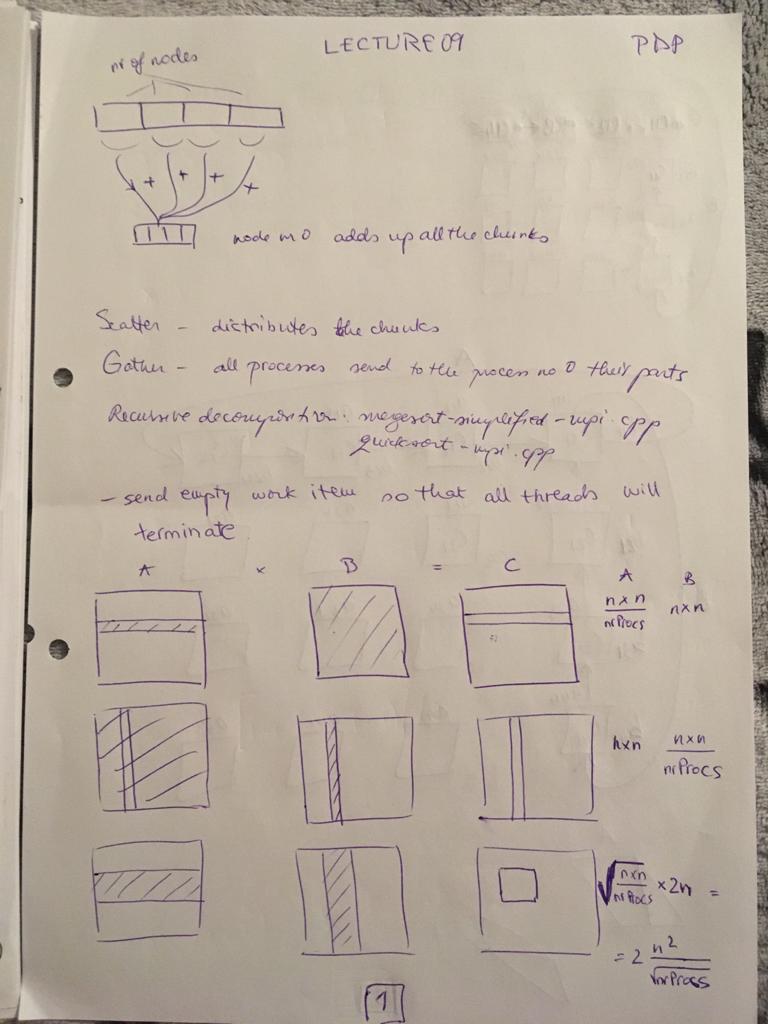 LECTURE 09 PDP
nr of nodes
+ + + +
node no 0 adds up all the chunks
Scatter - distributes the chunks
Gather - all processes send to the process no 0 their parts
Recursive decomposition: mergesort-simplified-mpi.cpp
quicksort-mpi.cpp
- send empty work item so that all threads will
terminate.
A × B = C
A B
n×n / nrProcs n×n
n×n n×n / nrProcs
√(n×n / nrProcs) × 2n =
= 2 n² / √nrProcs
1